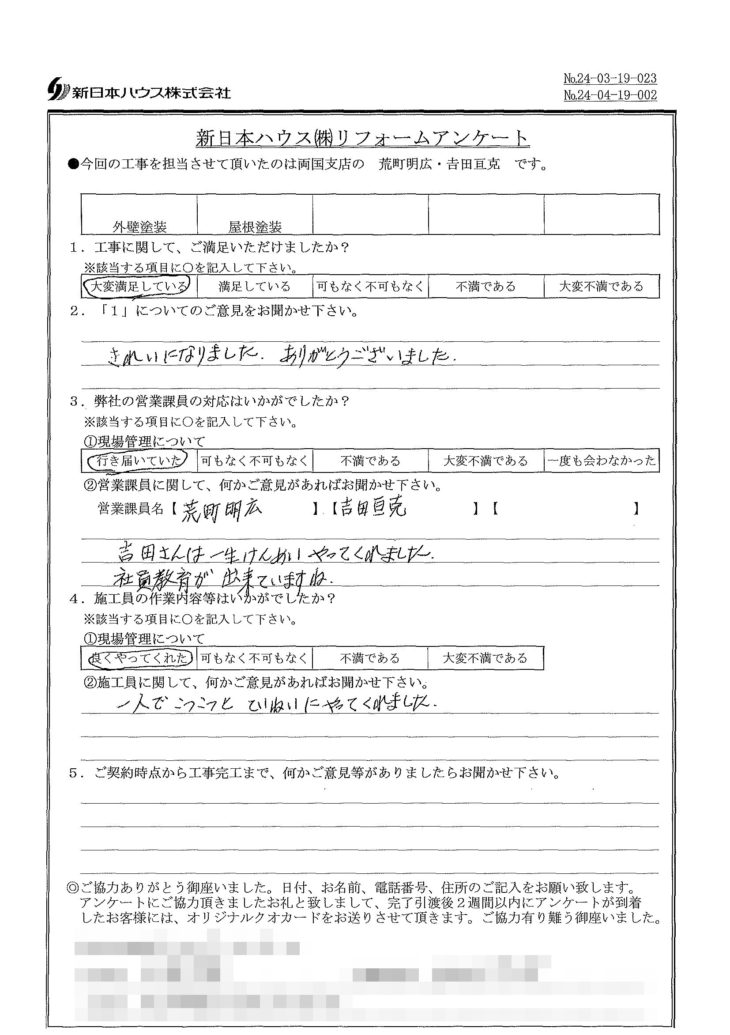 №24-03-19-023
№24-04-19-002
新日本ハウス株式会社
新日本ハウス㈱リフォームアンケート
●今回の工事を担当させて頂いたのは両国支店の 荒町明広・吉田亘克 です。
外壁塗装 屋根塗装
1．工事に関して、ご満足いただけましたか？
※該当する項目に○を記入して下さい。
大変満足している 満足している 可もなく不可もなく 不満である 大変不満である
2．「1」についてのご意見をお聞かせ下さい。
きれいになりました. ありがとうございました.
3．弊社の営業課員の対応はいかがでしたか？
※該当する項目に○を記入して下さい。
①現場管理について
行き届いていた 可もなく不可もなく 不満である 大変不満である 一度も会わなかった
②営業課員に関して、何かご意見があればお聞かせ下さい。
営業課員名【 荒町明広 】【 吉田亘克 】【 】
吉田さんは一生けんめいやってくれました.
社員教育が出来ていますね.
4．施工員の作業内容等はいかがでしたか？
※該当する項目に○を記入して下さい。
①現場管理について
良くやってくれた 可もなく不可もなく 不満である 大変不満である
②施工員に関して、何かご意見があればお聞かせ下さい。
一人でこつこつとていねいにやってくれました.
5．ご契約時点から工事完工まで、何かご意見等がありましたらお聞かせ下さい。
◎ご協力ありがとう御座いました。日付、お名前、電話番号、住所のご記入をお願い致します。
アンケートにご協力頂きましたお礼と致しまして、完了引渡後２週間以内にアンケートが到着
したお客様には、オリジナルクオカードをお送りさせて頂きます。ご協力有り難う御座いました。